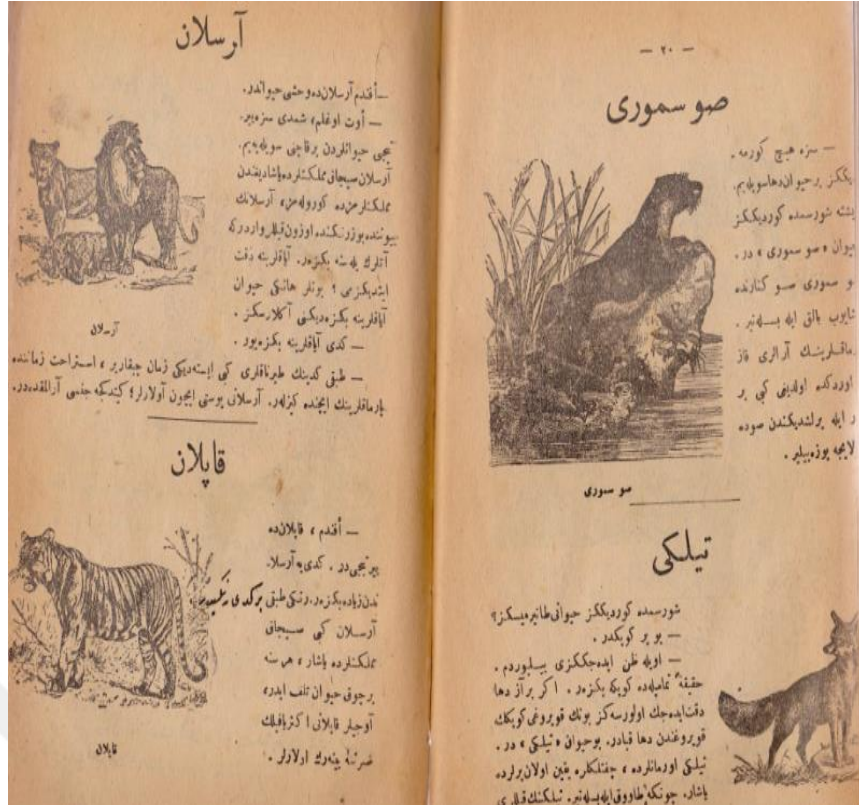 — ٢٠ —
صو سموری
— سزه هیچ کورمه .
یککز بر حیوان دها سویله‌یم.
یشته شو رسمده کوردیککز
حیوان « صو سموری » در .
و سموری صو کنارنده
شایوب بالق ایله بسله‌نیر .
ماقلرینك آرالری قاز
اوردکده اولدیغی کبی بر
ر ایله برلشدیکندن صوده
لایجه یوزه‌بیلیر .
صو سموری
تیلکی
شو رسمده کوردیککز حیوانی طانیرمیسکز؟
— بو بر کوپکدر .
— اویله ظن ایده‌جککزی بیلیوردم .
حقیقةً تمامیله‌ده کوپکه بکزه‌ر . اکر بر آز دها
دقت ایده‌جك اولورسه‌کز بونك قویروغی کوپکك
قویروغندن دها قبادر. بو حیوان « تیلکی » در .
تیلکی اورمانلرده ، چفتلکلره یقین اولان یرلرده
یاشار. چونکه طاووق ایله بسله‌نیر. تیلکینك قیللری
آرسلان
— أفندم آرسلان‌ده وحشی حیواندر.
— أوت اوغلم، شمدی سزه ییر.
تیجی حیوانلردن برقاچنی سویله‌یه‌یم.
آرسلان سیجاق مملکتلرده یاشادیغندن
مملکتلرمزده کورولمه‌ز. آرسلانك
بیوننده یوزرنکنده اوزون قیللر واردرکه
آنلرك یله‌سنه بکزه‌ر. آیاقلرینه دقت
ایتدیکزمی ؟ بونلر هانکی حیوان
آیاقلرینه بکزه‌دیکنی آکلارسکز .
— کدی آیاقلرینه بکزه‌یور .
— طبقی کدینك طیرناقلری کبی ایسته‌دیکی زمان چیقاریر ، استراحت زماننده
پارماقلرینك ایچنده کیزلر. آرسلانی پوستی ایچون آولارلر؛ کیتدکجه جنسی آزالمقده‌در.
آرسلان
قاپلان
— أفندم ، قاپلان‌ده
ییرتیجی‌در . کدی‌یه آرسلا.
ندن زیاده بکزه‌ر. رنکی طبقی
آرسلان کبی سیجاق
مملکتلرده یاشار ، هر سنه
برچوق حیوان تلف ایدر،
آوجیلر قاپلانی اکثریا فیلك
صرتنه بینه‌رك اولارلر .
قاپلان